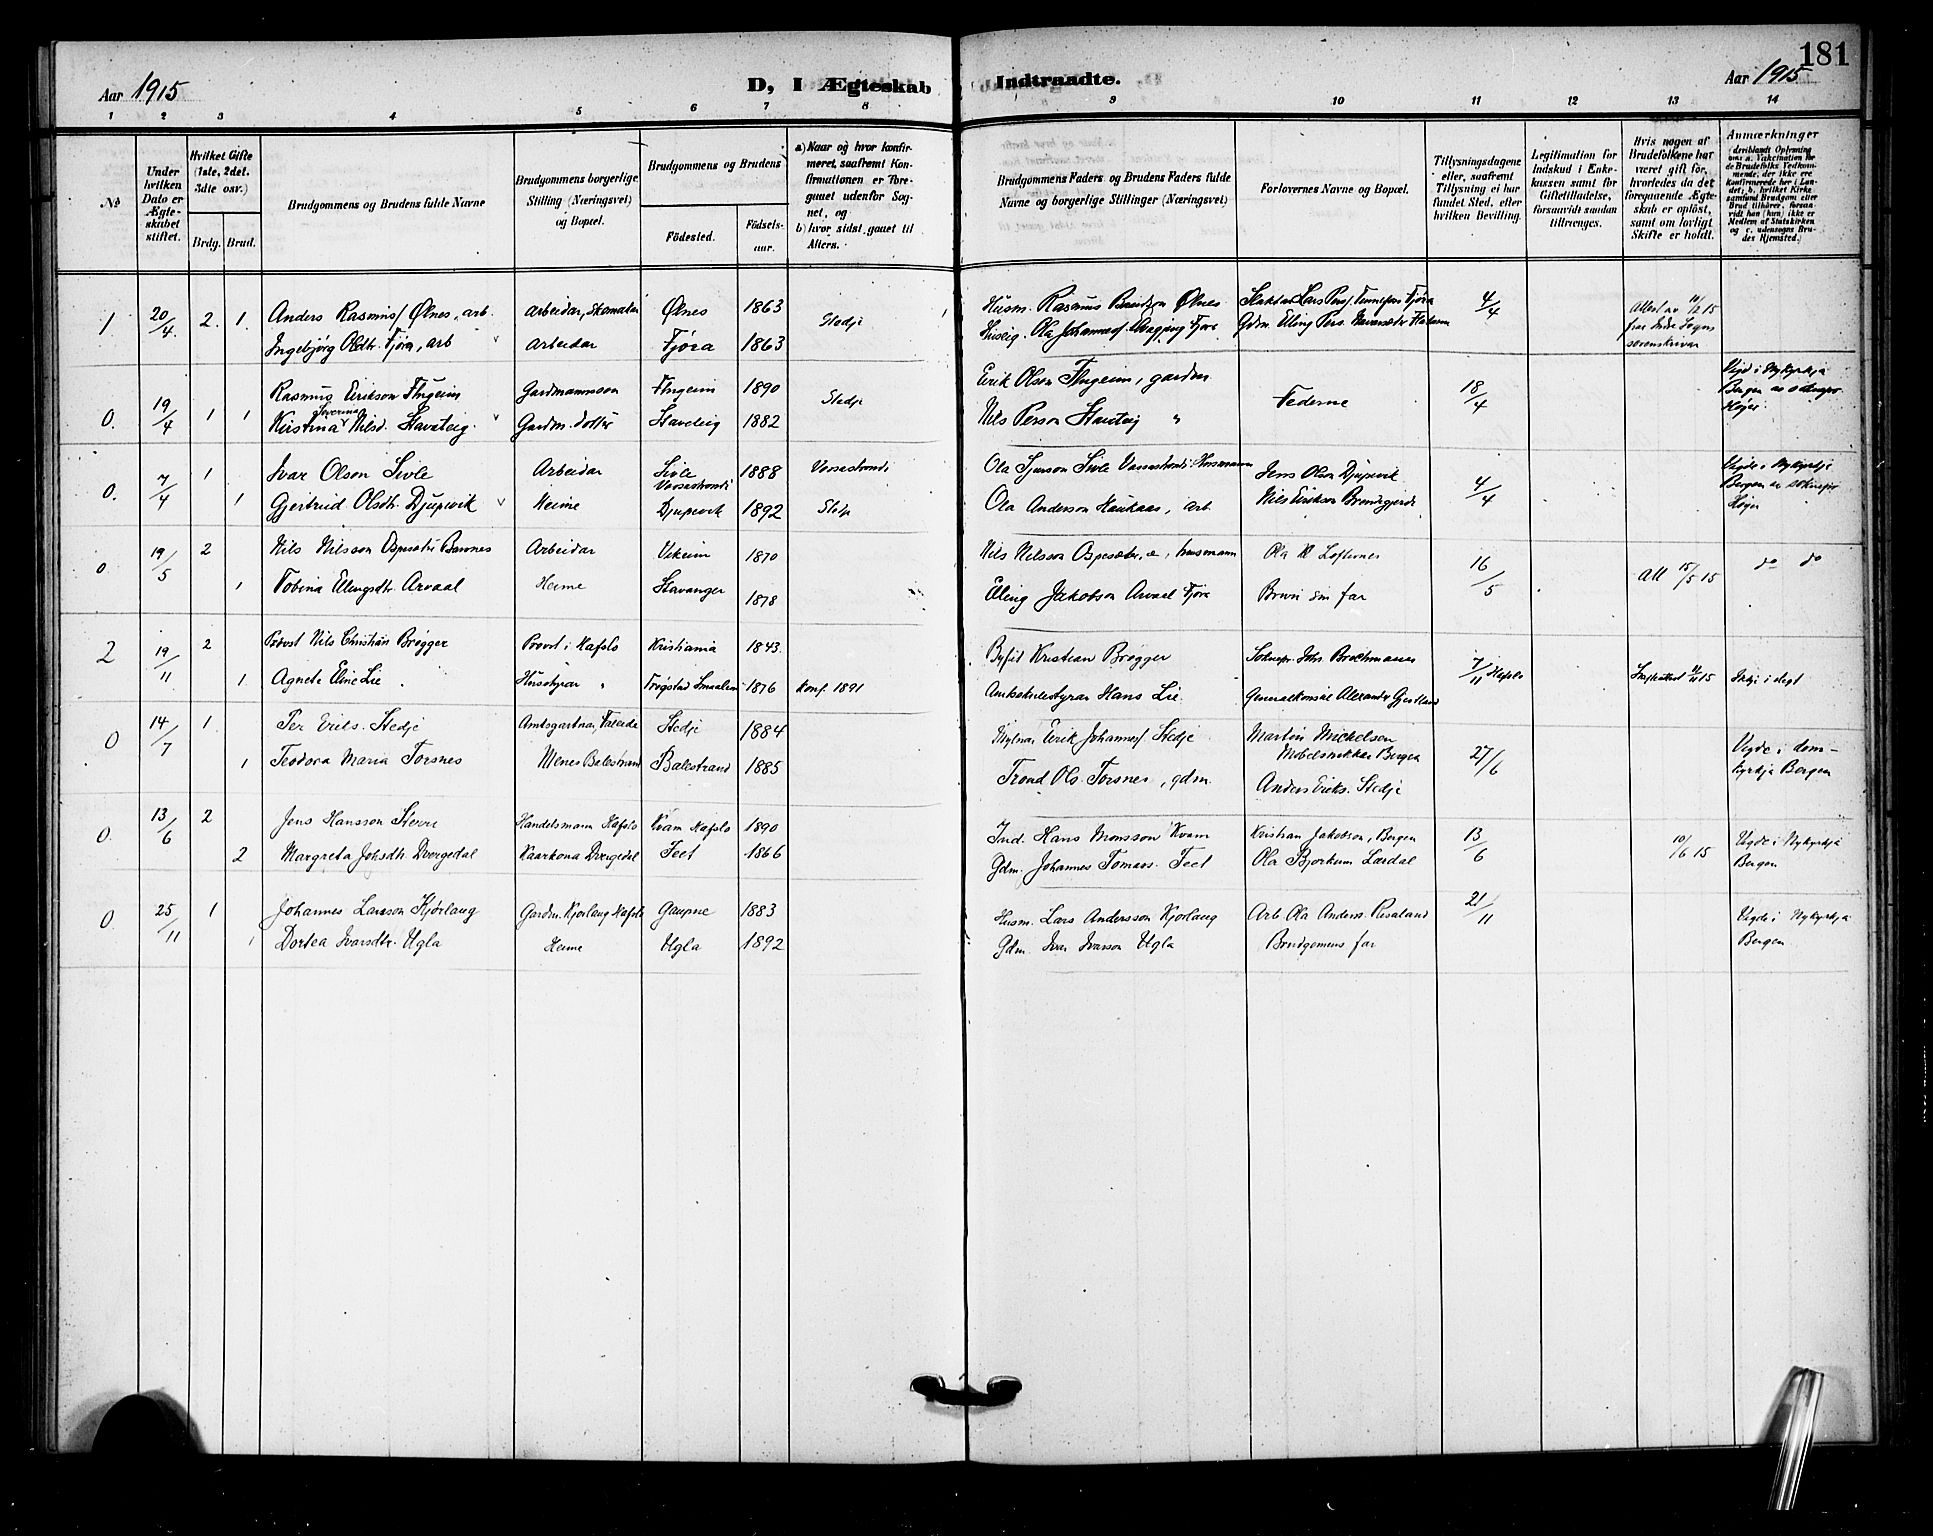 181
Aar 1915
D, I Ægteskab Indtraadte.
Aar 1915
1 2 3 4 5 6 7 8 9 10 11 12 13 14
No
Under hvilken Dato er Ægteskabet stiftet.
Hvilket Gifte (1ste, 2det. 3die osv.)
Brdg. Brud.
Brudgommens og Brudens fulde Navne
Brudgommens borgerlige Stilling (Næringsvei) og Bopæl.
Brudgommens og Brudens
Födested.
Födselsaar.
a) Naar og hvor konfirmeret, saafremt Konfirmationen er foregaaet udenfor Sognet, og
b) hvor sidst gaaet til Alters.
Brudgommens Faders og Brudens Faders fulde Navne og borgerlige Stillinger (Næringsvei)
Forlovernes Navne og Bopæl.
Tillysningsdagene eller, saafremt Tillysning ei har fundet Sted, efter hvilken Bevilling.
Legitimation for Indskud i Enkekassen samt for Giftetilladelse, forsaavidt saadan tiltrænges.
Hvis nogen af Brudefolkene har været gift før, hvorledes da det foregaaende Ægteskab er opløst, samt om lovligt Skifte er holdt.
Anmærkninger
(deriblandt Oplysning om: a. Vakcination for de Brudefolks Vedkommende, der ikke ere Konfirmerede her i Landet; b. hvilket Kirkesamfund Brudgom eller Brud tilhører, forsaavidt han (hun) ikke er Medlem af Statskirken og c. udensogns Brudes Hjemsted.)
1 20/4 2. 1. Anders Rasmuss Ølnes, arb. Arbeidar, Skomakar Ølnes 1863 Stedje Husm. Rasmus Ølnes Lars Pers. Fjøra 4/4 Attest av 10/2 15
Ingebjørg Olsdtr. Fjøra, arb Arbeidar Fjøra 1863 Ola Johanness. Fjøra Gdm. Elling Pers. frå Indre Sogns
sorenskrivar
0. 19/4 1 1 Rasmus Eirikson Flugeim Gardmannsson Flugeim 1890 Stedje Eirik Olson Flugeim, gardm Federne 18/4 Vigd i Nykyrkja
Severina
Kristina Nilsd. Stavsteig Gardm. dotter Stavsteig 1882 Nils Person Stavsteig " Bergen av sokneprs
Høyer
0. 7/4 1 Ivar Olson Sivle Arbeidar Sivle Vossestrondi 1888 Vossestrondi Ola Sjurson Sivle Vossestrondi Husmann Jens Olson Djupevik 4/4 Vigde i Nykyrkje
1 Gjertrud Olsdtr. Djupevik Heime Djupevik 1892 Stedje Ola Anderson Haukaas, arb Nils Eirikson Brandegjerde Bergen av soknepr
Høyer
0. 19/5 2 Nils Nilsson Ospesæter Barsnes Arbeidar Vikeim 1870 Nils Nilsson Ospesæter, husmann Ola N Loftesnes 16/5 Att 15/5 15 do do
1 Tobina Ellingsdtr. Arvaal Heime Stavanger 1878 Elling Jakobson Arvaal Fjøra Bruri sin far
2 19/11 2 Provst Nils Christian Brøgger Provst i Hafslo Kristiania 1843. Kristian Brøgger Soknepr. Johs Brochmann 7/11 Hafslo Skifteattest 15
1 Agnete Eline Lie Husstyrar " Trøgstad Smaalen 1876 Konf. 1891 Amtsskulestyrar Hans Lie Generalkonsul Alexander Gjestland
0 14/7 1. Per Eriks. Stedje Amtsgartnar, Faleide Stedje 1884 Mylnar Eirik Johanness Stedje Martin Mickelson 27/6 Vigde i dom-
1 Teodora Maria Torsnes Menes Balestrand Balestrand 1885 Trond Ols. Torsnes, gdm. Møbelsnikkar Bergen kyrkja Bergen
Anders Eriks. Stedje
0. 13/6 2 Jens Hansson Sterri Handelsmann Hafslo Kvam Hafslo 1890 Ind. Hans Monsson Kvam Kristian Jakobson, Bergen 13/6 10/6 15 Vigde i Nykyrkja
2 Margreta Johsdtr. Dvergedal Kaarkona Dvergedal Feet 1866 Gdm. Johannes Tomass. Feet Ola Bjørkum Lærdal Bergen
0 25/11 1 Johannes Larsson Kjørlaug Gardm. Kjørlaug Hafslo Gaupne 1883 Husm. Lars Andersson Kjørlaug Arb Ola Anders. Risaland 21/11 Vigde i Nykyrkja
1 Dortea Ivarsdtr. Ugla Heime Ugla 1892 Gdm. Ivar Ivarson Ugla Brudgomens far Bergen